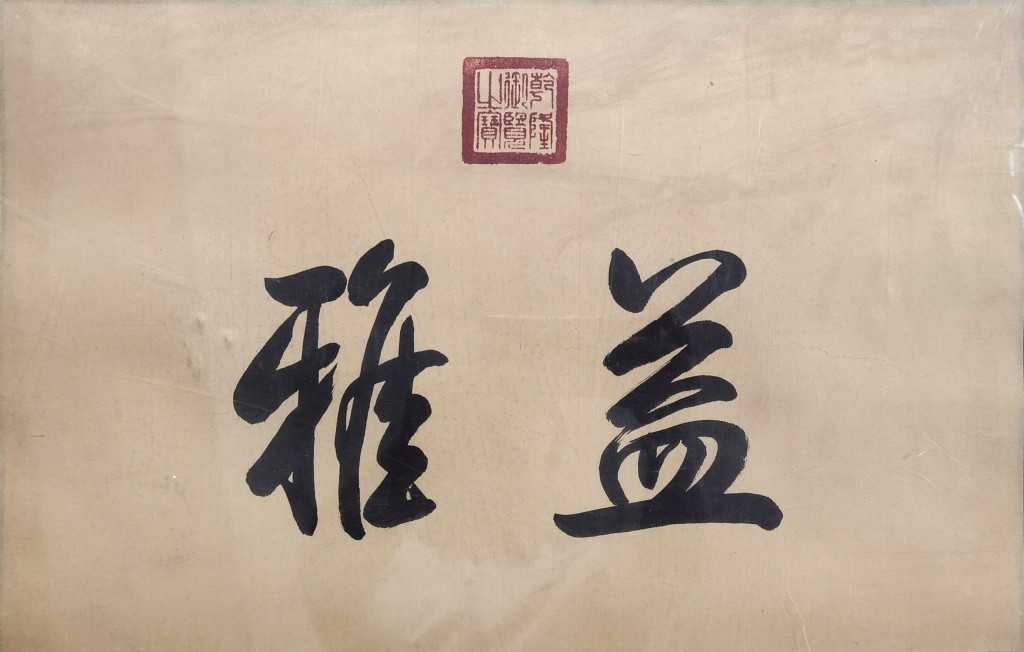 乾隆御覽之寶
益雅